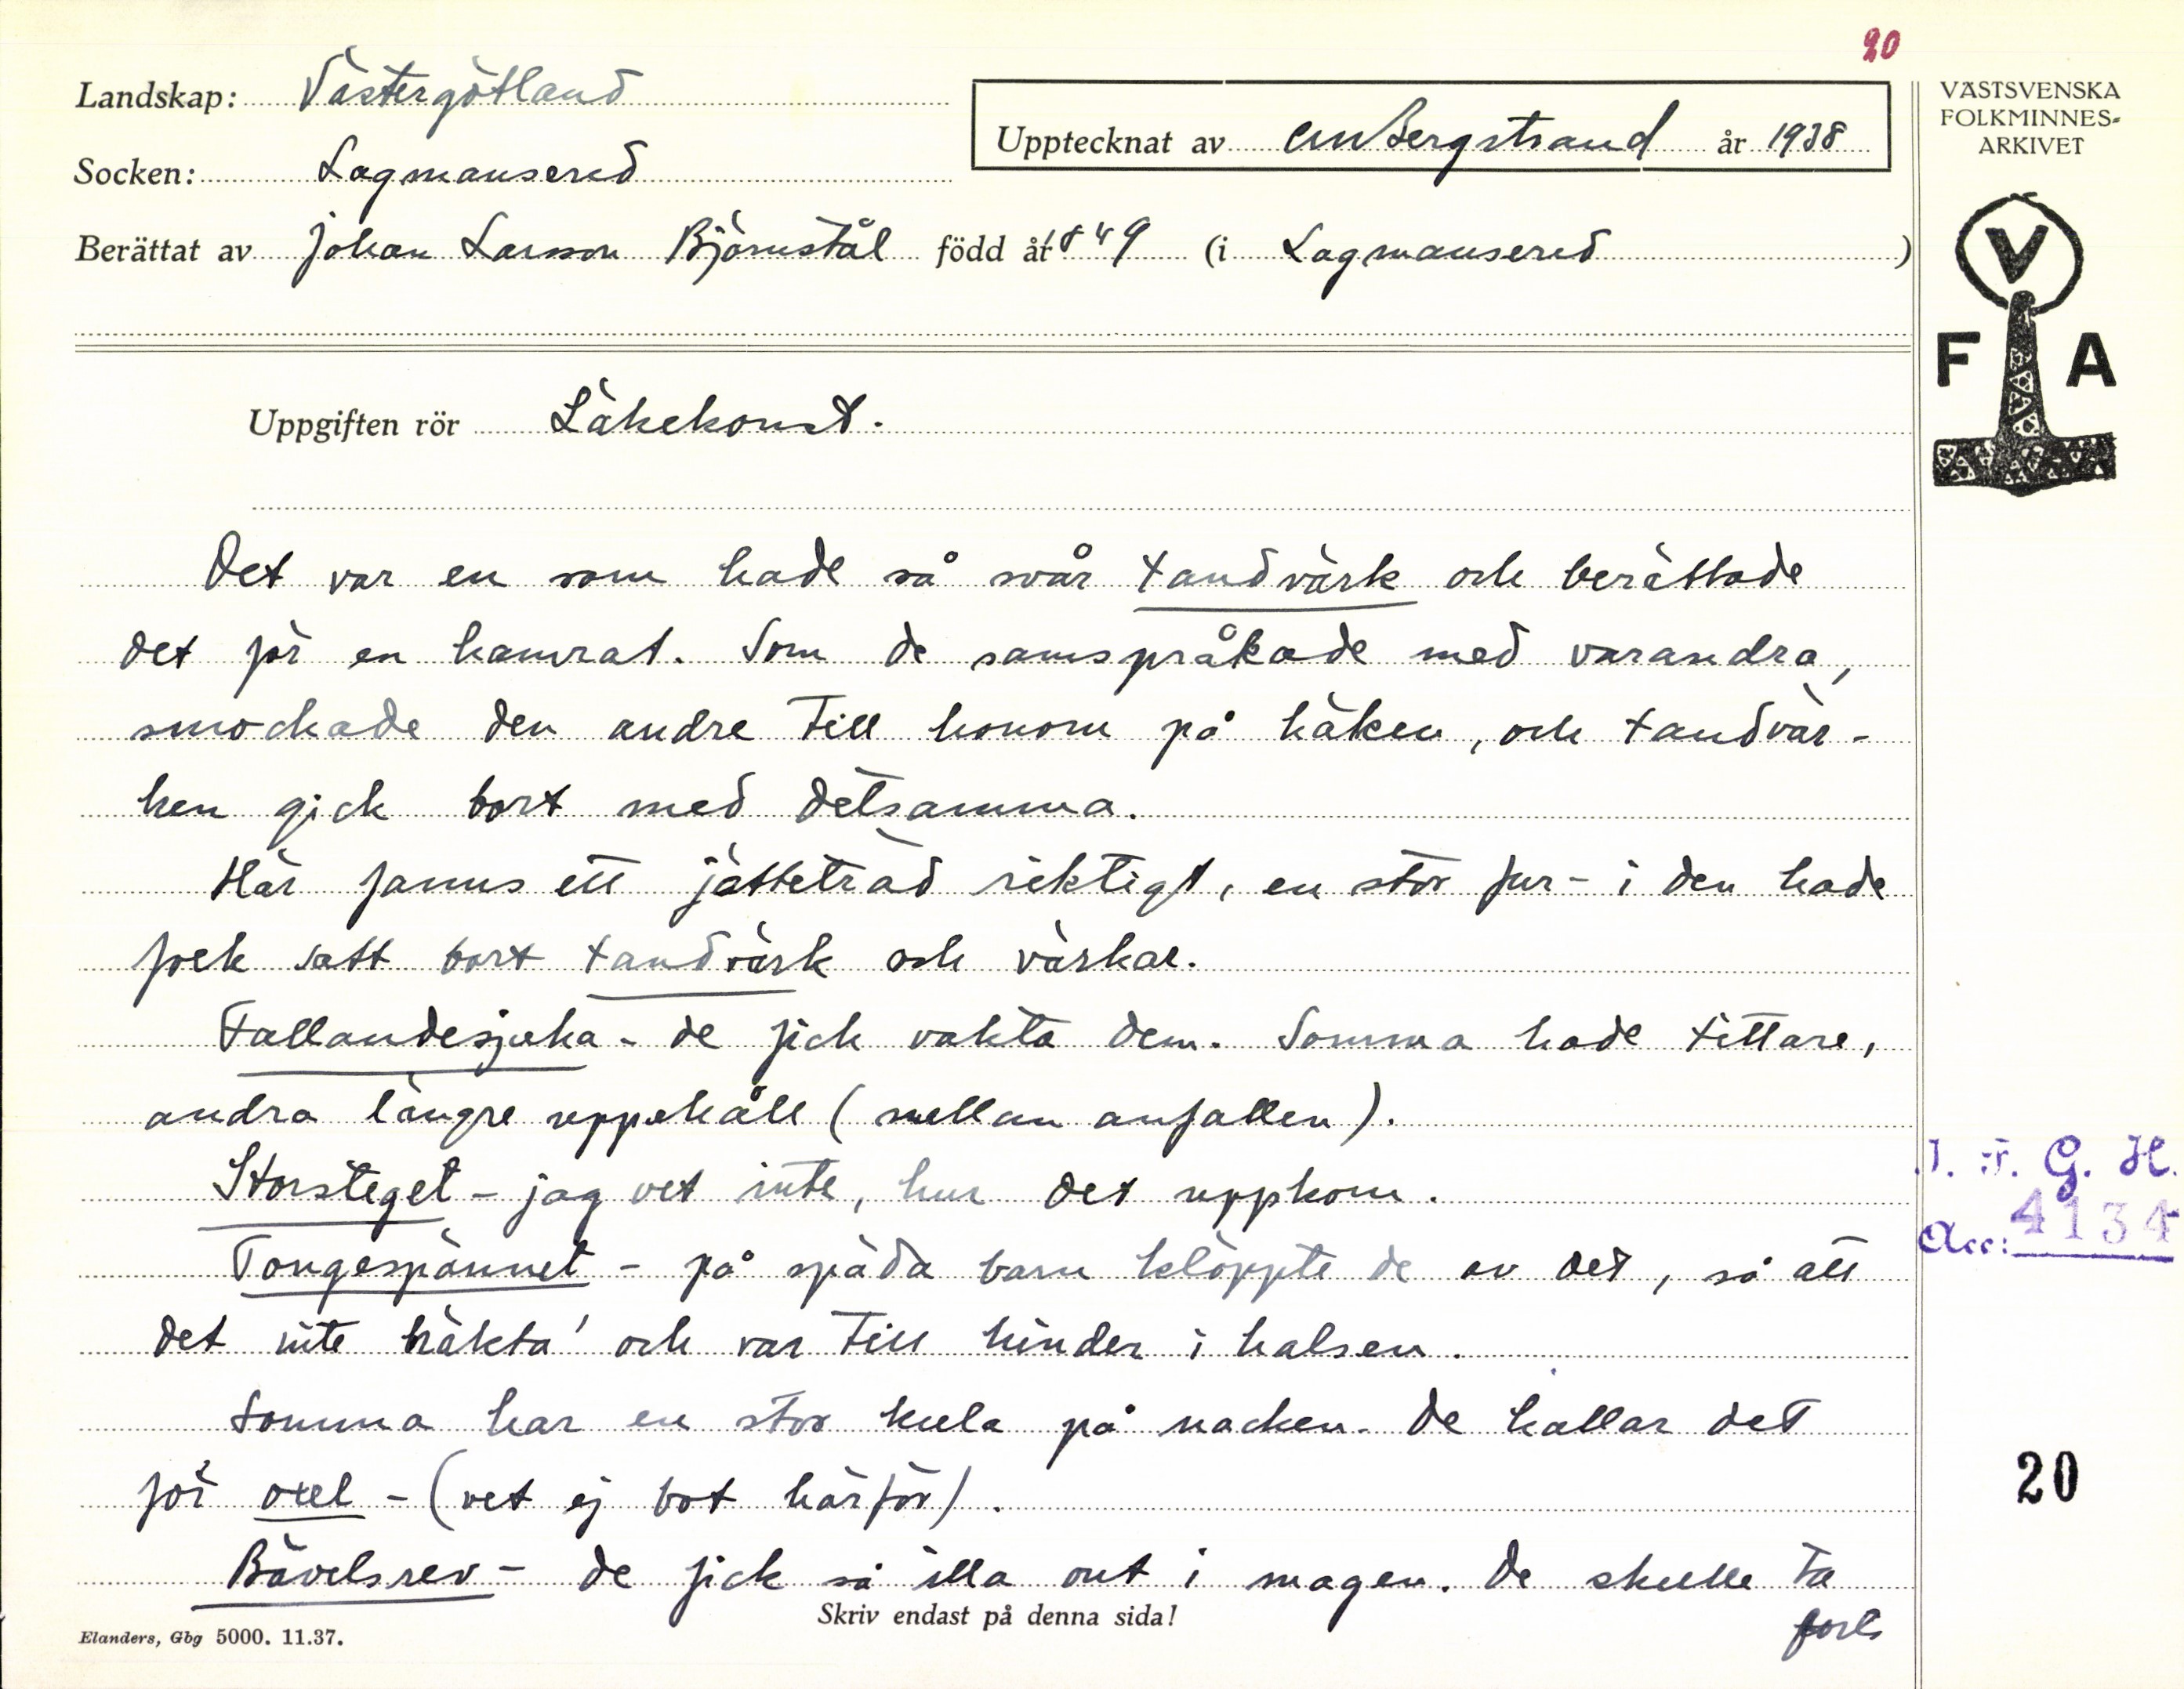 20
Landskap: Västergötland
Socken: Lagmansered
Upptecknat av CMBergstrand år 1938
Berättat av Johan Larsson Björnstål född år 1849 (i Lagmansered)
VÄSTSVENSKA
FOLKMINNES-
ARKIVET
V
F A
Uppgiften rör Läkekonst.
Det var en som hade så svår tandvärk och berättade
det för en kamrat. Som de samspråkade med varandra,
smockade den andre till honom på käken, och tandvär-
ken gick bort med detsamma.
Här fanns ett jätteträd riktigt, en stor fur - i den hade
folk satt bort tandvärk och värkar.
Fallandesjuka - de fick vakta dem. Somma hade tittare,
andra längre uppehåll (mellan anfallen).
Storsteget - jag vet inte, hur det uppkom.
Tongespännet - på späda barn klöppte de av det, så att
det inte häkta' och var till hinder i halsen.
Somma har en stor kula på nacken. De kallar det
för oxel - (vet ej bot härför).
Bävelsrev - de fick så illa ont i magen. De skulle ta
forts
I. F. G. H.
Acc: 4134
20
Skriv endast på denna sida!
Elanders, Gbg 5000. 11.37.